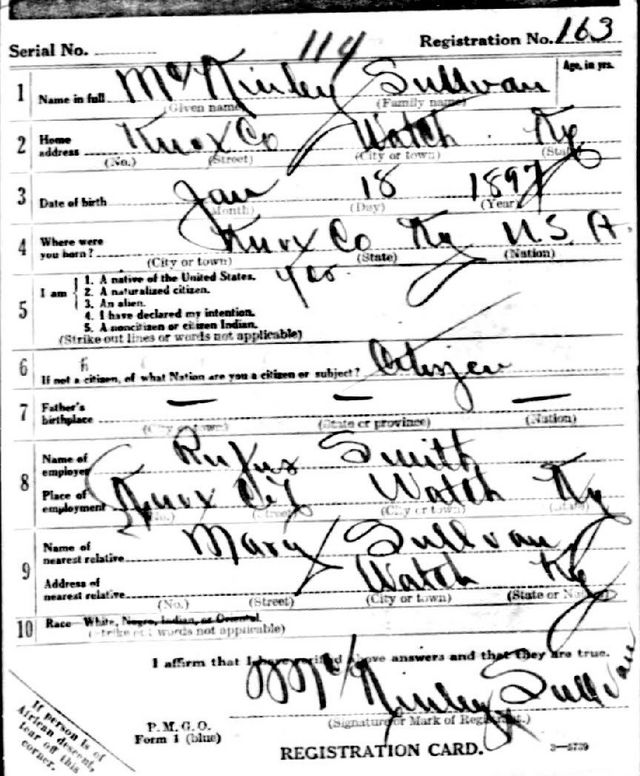 Serial No. 114 Registration No. 163
1 Name in full McKinley Sullvan Age, in yrs.
(Given name) (Family name)
2 Home address Knox Co Watch Ky
(No.) (Street) (City or town) (State)
3 Date of birth Jan 18 1897
(Month) (Day) (Year)
4 Where were you born? Knox Co Ky U.S.A.
(City or town) (State) (Nation)
5 I am
1. A native of the United States. yes
2. A naturalized citizen.
3. An alien.
4. I have declared my intention.
5. A noncitizen or citizen Indian.
(Strike out lines or words not applicable)
6 If not a citizen, of what Nation are you a citizen or subject? Citizen
7 Father's birthplace — — —
(City or town) (State or province) (Nation)
8 Name of employer Rufus Smith
Place of employment Knox Watch Ky
(No.) (Street) (City or town) (State)
9 Name of nearest relative Mary Sullvan
Address of nearest relative Watch Ky
(No.) (Street) (City or town) (State or Nation)
10 Race—White, Negro, Indian, or Oriental.
(Strike out words not applicable)
I affirm that I have verified above answers and that they are true.
McKinley Sullvan
(Signature or Mark of Registrant.)
P.M.G.O.
Form 1 (blue)
REGISTRATION CARD. 3—5739
If person is of
African descent,
tear off this
corner.